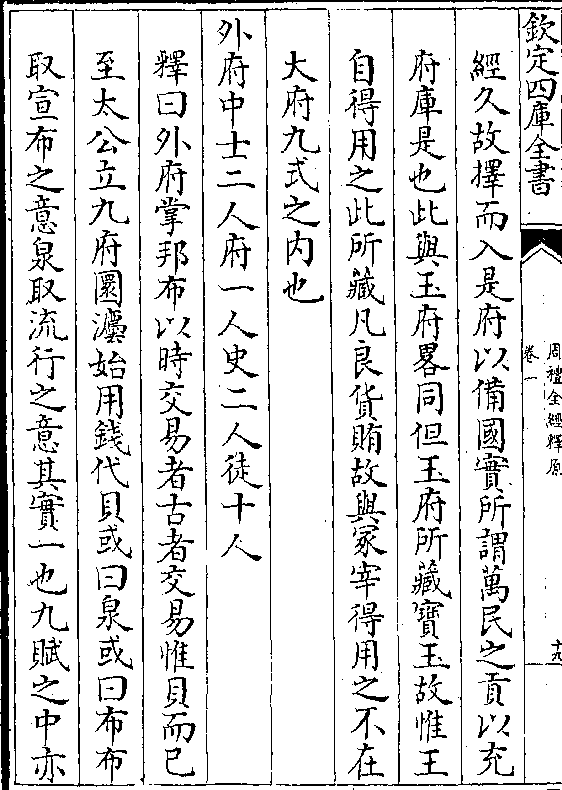 欽定四庫全書
周禮全經釋原
卷一
十九
經久故擇而入是府以備國實所謂萬民之貢以充
府庫是也此與玉府畧同但玉府所藏寶玉故惟王
自得用之此所藏凡良貨賄故與冢宰得用之不在
大府九式之內也
外府中士二人府一人史二人徒十人
釋曰外府掌邦布以時交易者古者交易惟貝而已
至太公立九府圜灋始用錢代貝或曰泉或曰布布
取宣布之意泉取流行之意其實一也九賦之中亦